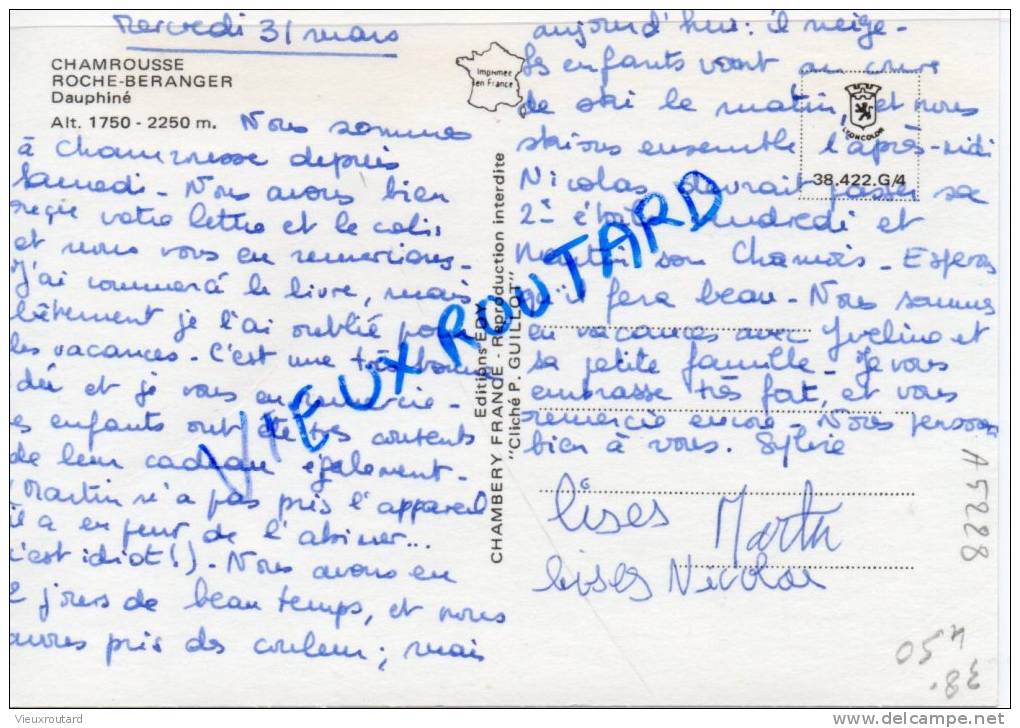 Mercredi 31 mars
CHAMROUSSE
ROCHE-BERANGER
Dauphiné
Alt. 1750 - 2250 m.
Nous sommes
à Chamrousse depuis
Samedi - Nous avons bien
reçu votre lettre et le colis
et nous vous en remercions -
J'ai commencé le livre, mais
bêtement je l'ai oublié pour
les vacances - C'est une très bonne
idée et je vous en remercie -
es enfants ont été très contents
de leur cadeau également -
(Martin n'a pas pris l'appareil
il a eu peur de l'abimer...
c'est idiot!) - Nous avons eu
2 jours de beau temps, et nous
avons pris des couleurs ; mais
Imprimée
en France
Editions EDY
CHAMBERY FRANCE - Reproduction interdite
"Cliché P. GUILLOT"
aujourd'hui : il neige -
Les enfants vont au cours
de ski le matin, et nous
skions ensemble l'après-midi
Nicolas devrait passer sa
2e étoile vendredi et
Martin son Chamois - Espérons
qu'il fera beau - Nous sommes
en vacances avec Yveline et
sa petite famille - Je vous
embrasse très fort, et vous
remercie encore - Nous pensons
bien à vous. Sylvie
bises Martin
bises Nicolas
LYONCOLOR
38.422.G/4
VIEUX ROUTARD
A5228
05 4
38.
Vieuxroutard
delcampe.net